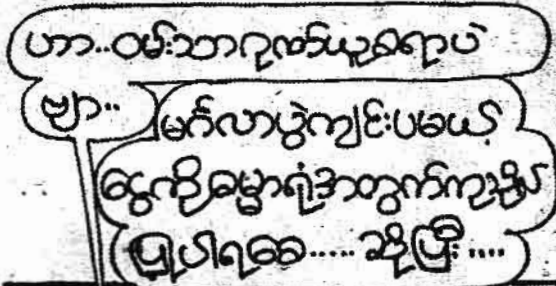 ဟာ..ဝမ်းသာဂုဏ်ယူစရာပဲ
ဗျာ..
မင်္ဂလာပွဲကျင်းပမယ့်
ငွေကိုဓမ္မာရုံအတွက်ကုသိုလ်
ပြုပါရစေ.....ဆိုပြီး....